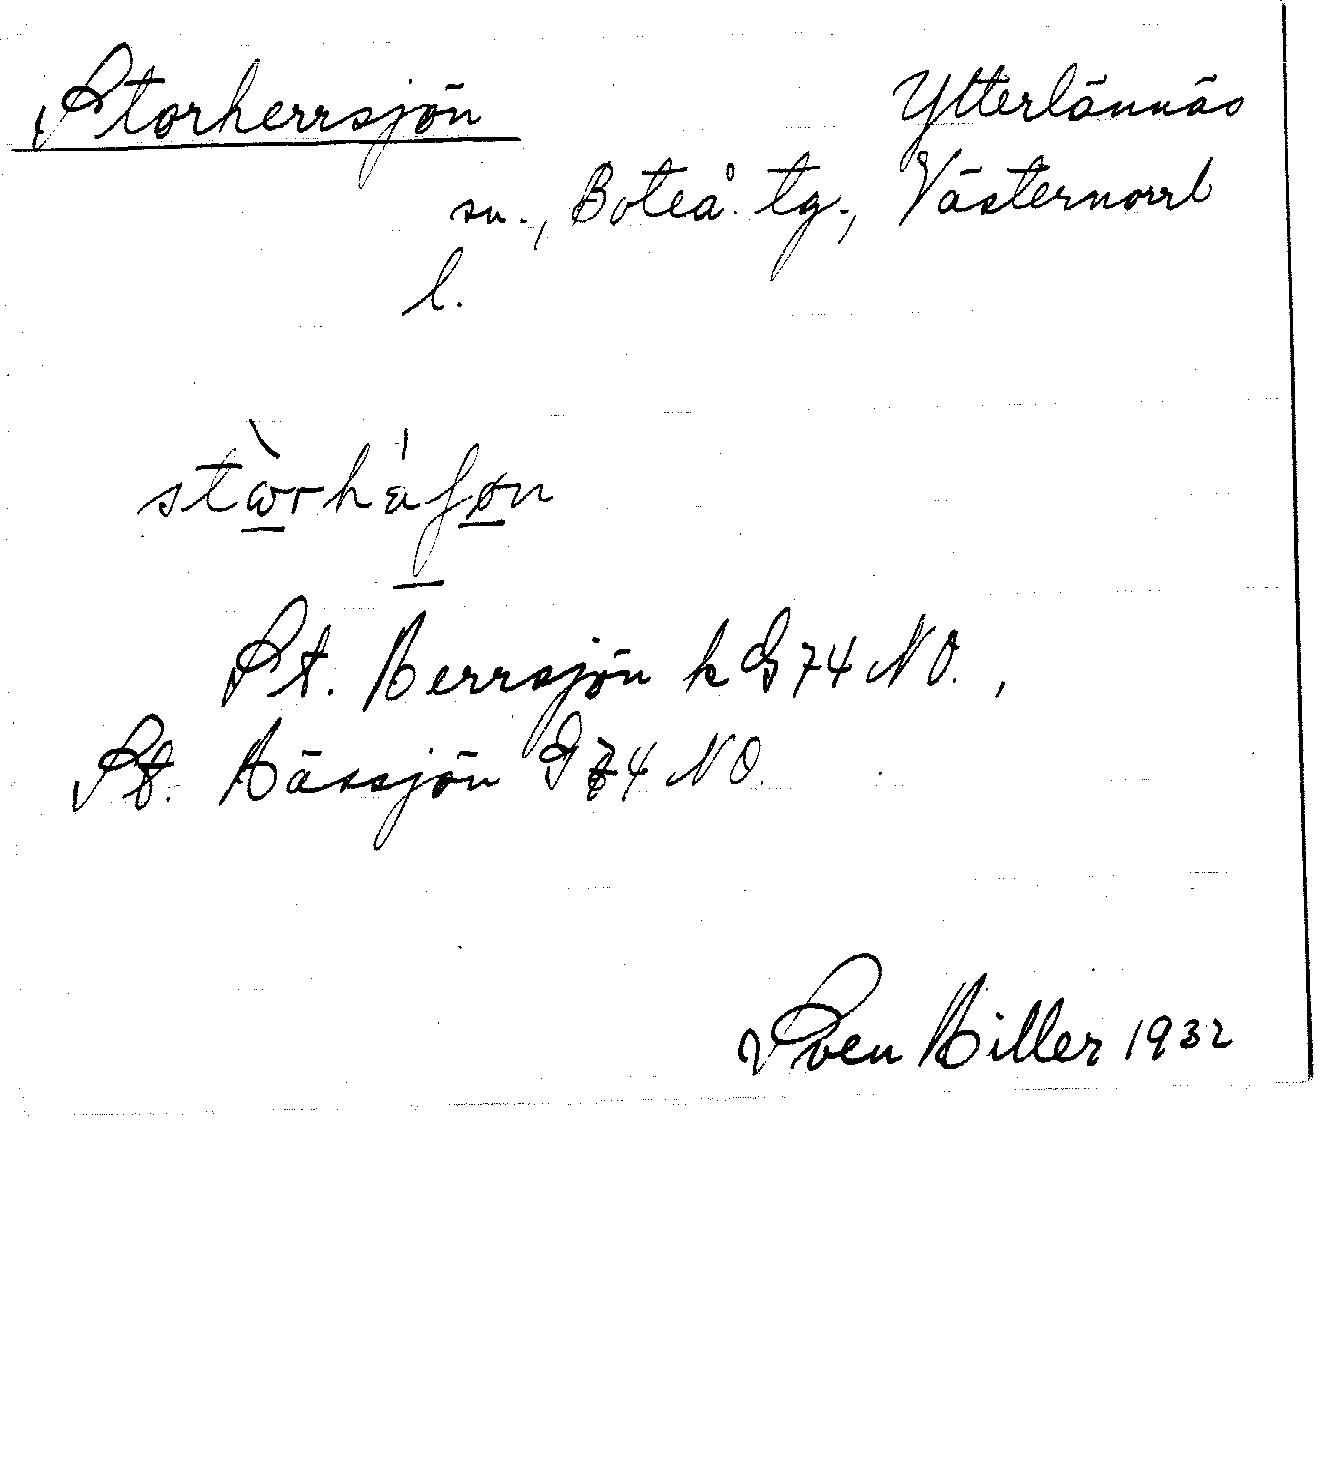 Storherrsjön
Ytterlännäs
sn., Boteå tg., Västernorrl
l.
St. Herrsjön k G 74 NO.,
St. Hässjön G 74 NO.
Sven Hiller 1932